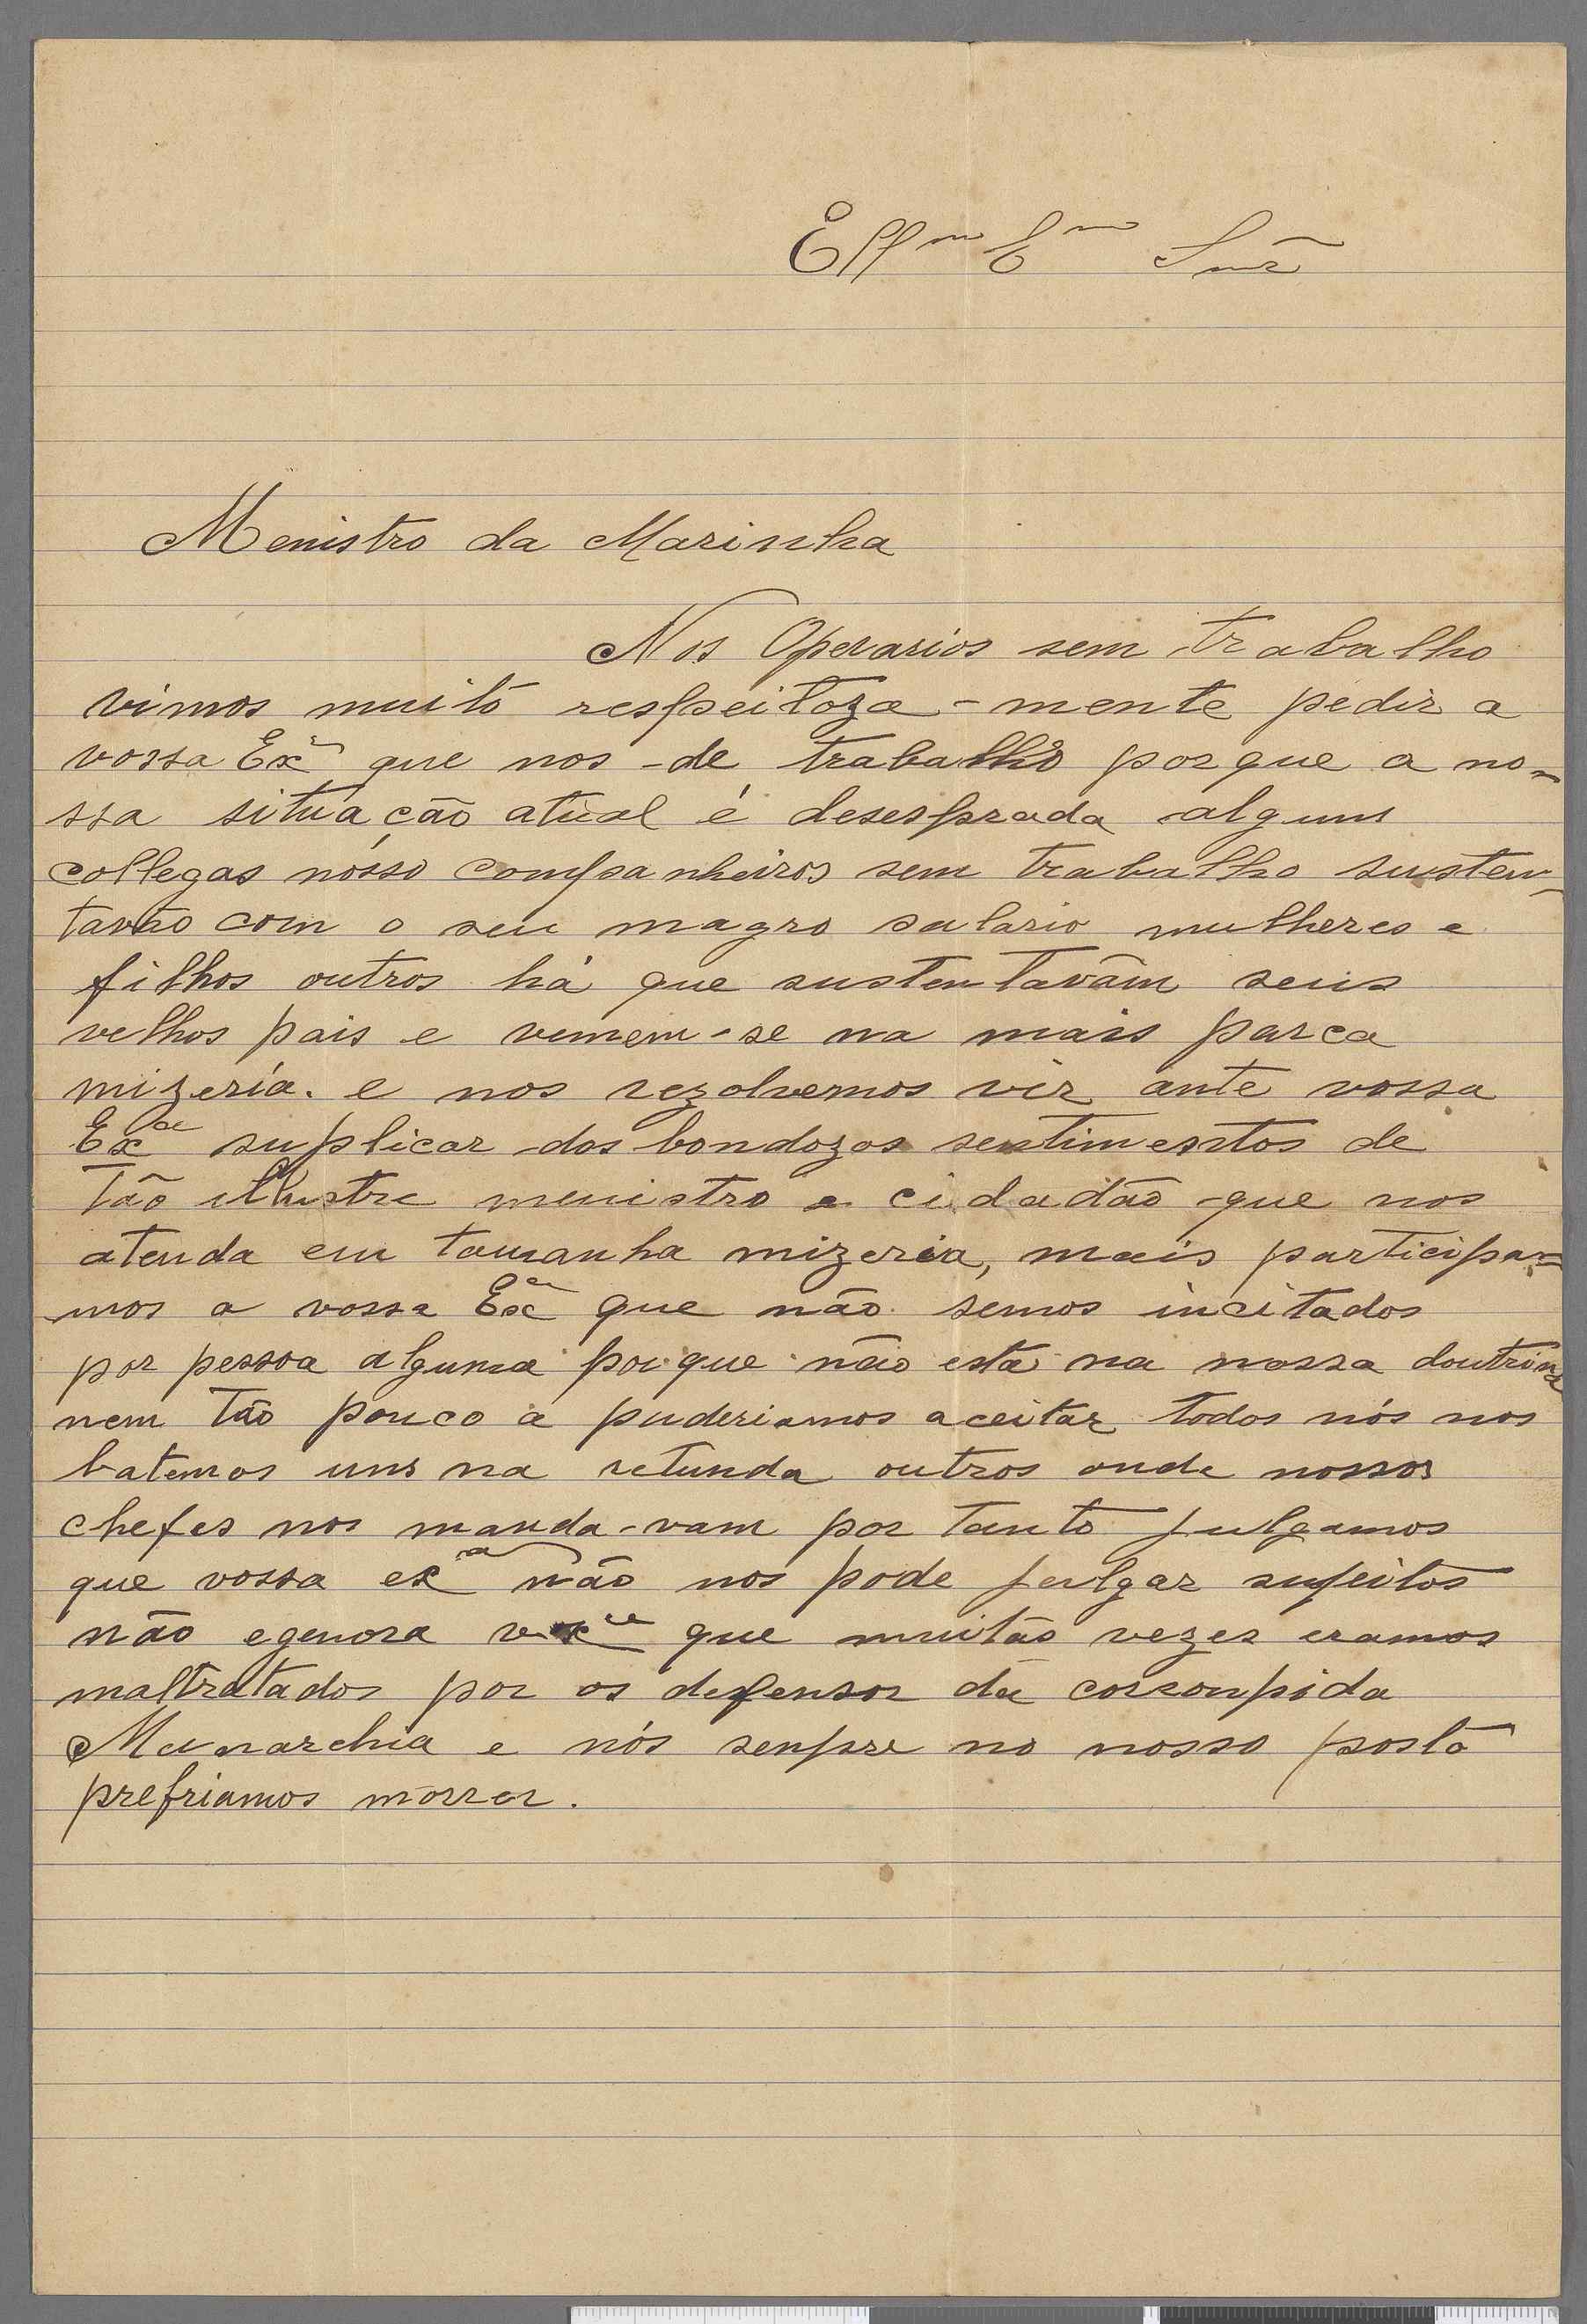 Ellmo Emo Snr
Menistro da Marinha
Nos Operarios sem trabalho
vimos muito respeitoza-mente pedir a
vossa Exa que nos-de trabalho porque a no-
ssa situação atual é desesprada alguns
collegas nósso companheiros sem trabalho susten-
tavão com o seu magro salario mulheres e
filhos outros há que sustentavãm seus
velhos pais e vemem-se na mais parca
mizeria. e nos rezolvemos vir ante vossa
Exa suplicar dos bondozos sentimentos de
tão illustre menistro e cidadão que nos
atenda em tamanha mizeria, mais participa-
mos a vossa Exa que não semos incitados
por pessoa alguma porque não está na nossa doutrina
nem tão pouco a puderiamos aceitar todos nós nos
batemos uns na retunda outros onde nossos
chefes nos manda-vam por tanto julgamos
que vossa exa não nos pode julgar sujeitos
não egenora que muitas vezes eramos
maltratados por os defensor da corronpida
Munarchia e nós senpre no nosso posto
prefriamos morrer.